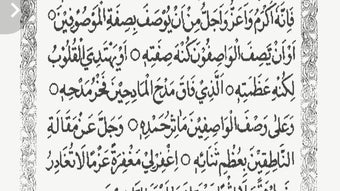 فَاِنَّهٗ اَكْرَمُ وَاَعَزُّ وَاَجَلُّ مِنْ اَنْ يُوْصَفَ بِصِفَةِ الْمَوْصُوْفِيْنَ ○
اَوْ اَنْ تَصِفَ الْوَاصِفُوْنَ كُنْهَ صِفَتِهٖ ○ اَوْ يَهْتَدِيَ الْقُلُوْبُ
لِكُنْهِ عَظَمَتِهٖ ○ اَلَّذِيْ فَاقَ مَدْحَ الْمَادِحِيْنَ فَخْرُ مَدْحِهٖ ○
وَعَلٰى وَصْفَ الْوَاصِفِيْنَ مَاٰثِرُ حَمْدِهٖ ○ وَجَلَّ عَنْ مَقَالَةِ
النَّاطِقِيْنَ بِعُظْمِ ثَنَائِهٖ ○ اِغْفِرْلِيْ مَغْفِرَةً عَزْمًا لَا تُغَادِرُ